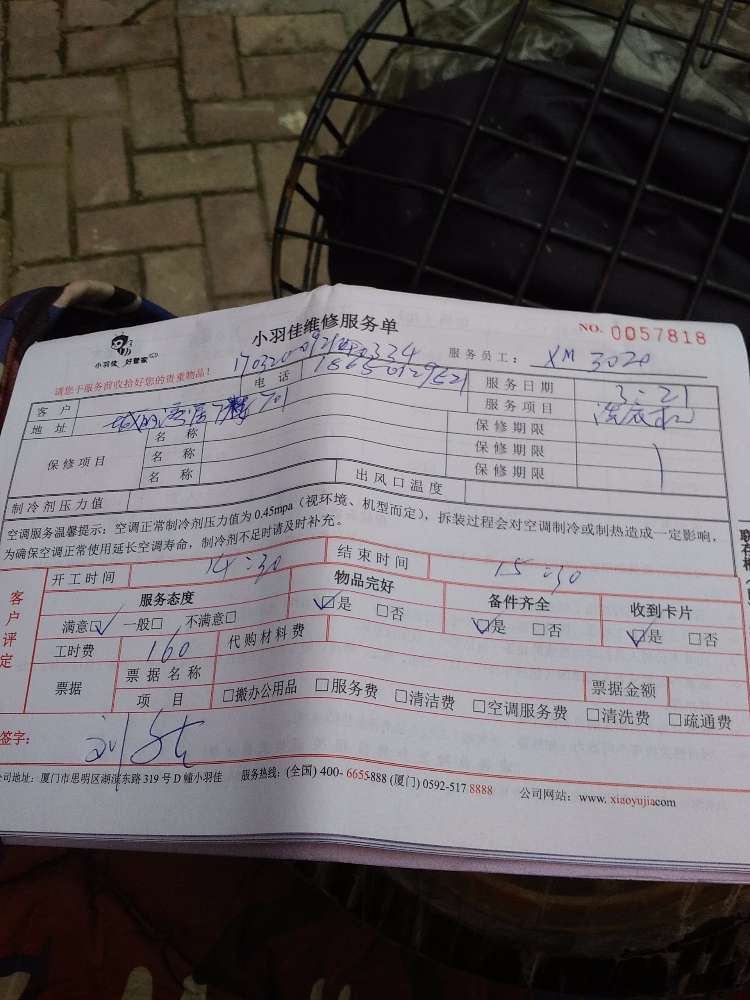 小羽佳 好管家
小羽佳维修服务单
NO. 0057818
请您于服务前收拾好您的贵重物品！
服务员工： XM 3020
客户
电话
服务日期 3:21
地址 701
服务项目
保修项目
名称 保修期限
名称 保修期限
名称 保修期限
制冷剂压力值
出风口温度
空调服务温馨提示：空调正常制冷剂压力值为0.45mpa（视环境、机型而定），拆装过程会对空调制冷或制热造成一定影响，
为确保空调正常使用延长空调寿命，制冷剂不足时请及时补充。
客户评定
开工时间 14:30 结束时间 15:30
服务态度 物品完好 备件齐全 收到卡片
满意☑ 一般□ 不满意□ ☑是 □否 ☑是 □否 ☑是 □否
工时费 160 代购材料费
票据 票据名称 票据金额
项目 □搬办公用品 □服务费 □清洁费 □空调服务费 □清洗费 □疏通费
签字：
公司地址：厦门市思明区湖滨东路319号D幢小羽佳 服务热线：(全国) 400-6655-888 (厦门) 0592-517 8888 公司网站：www. xiaoyujiacom